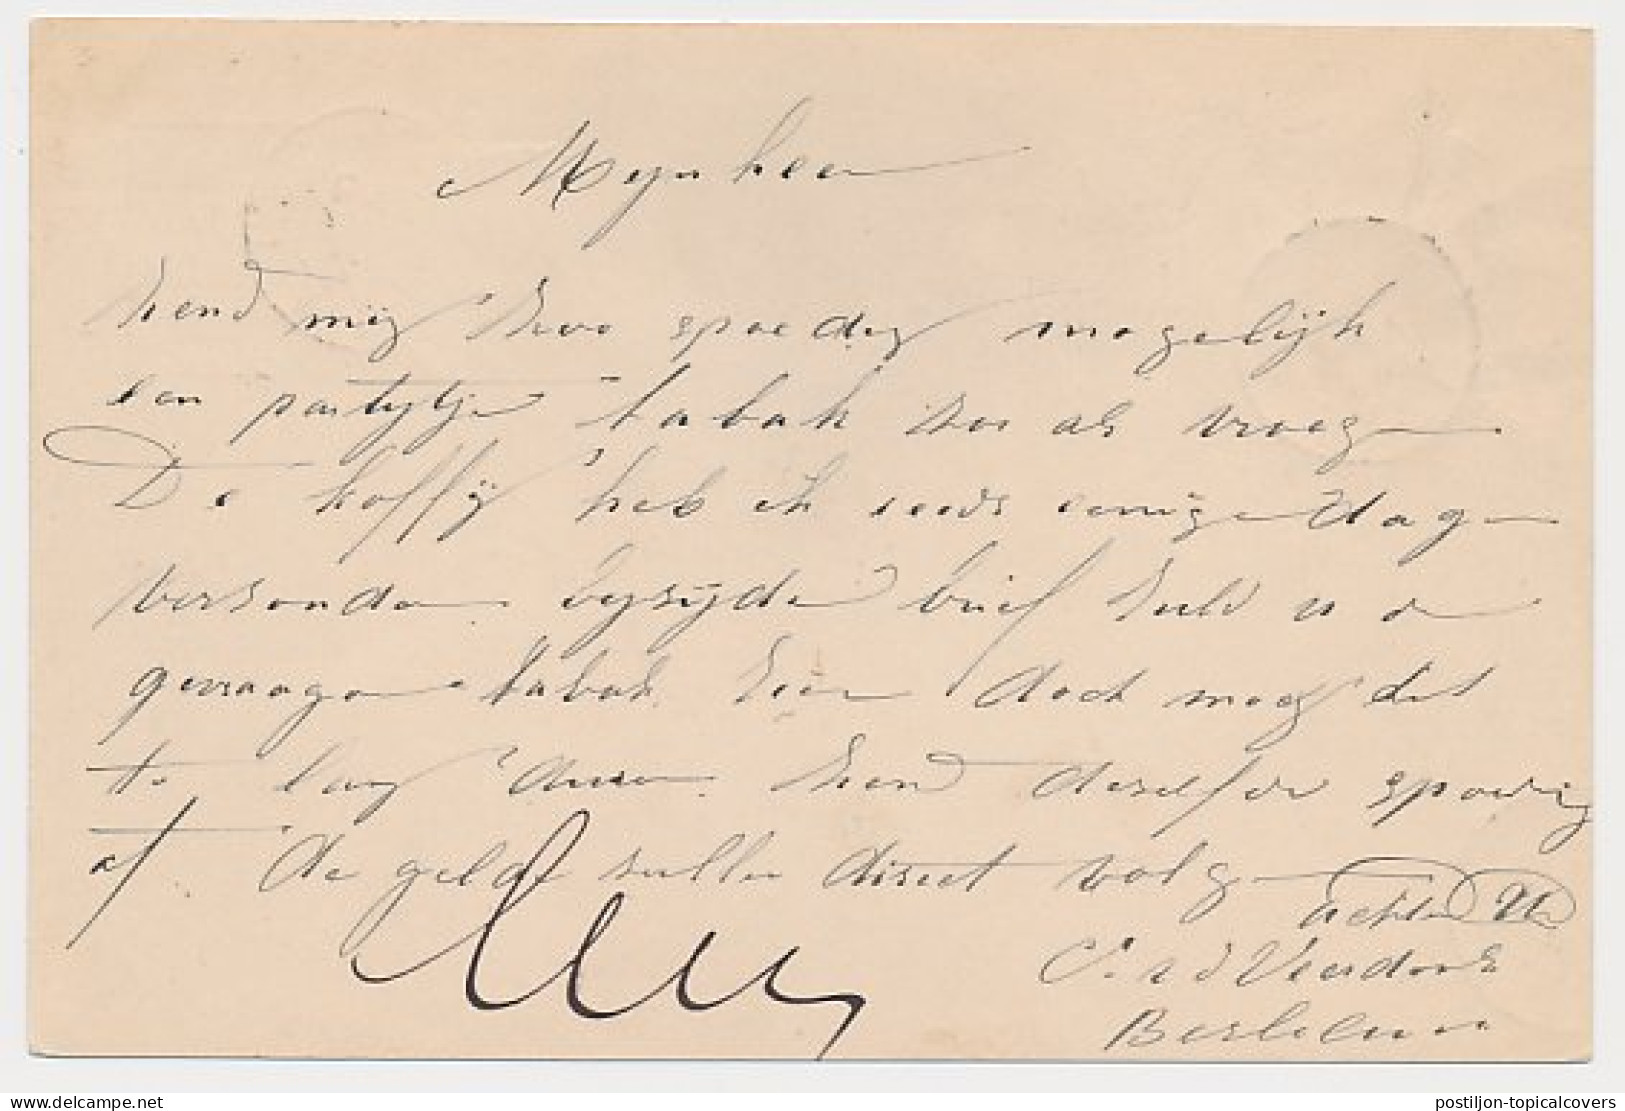 Mynheer
Zend mij zoo spoedig mogelijk
een partijtje tabak zoo als vroeger
De koffij heb ik reeds eenige dage
verzonden bijzijde brief zult u de
gevraagde tabak zien doch mogt dit
te lang duren zend dezelfde spoedig
af de gelde zulle direct volge
achtend Uw
v d Veerdonk
Berlicum
www.delcampe.net
postiljon-topicalcovers